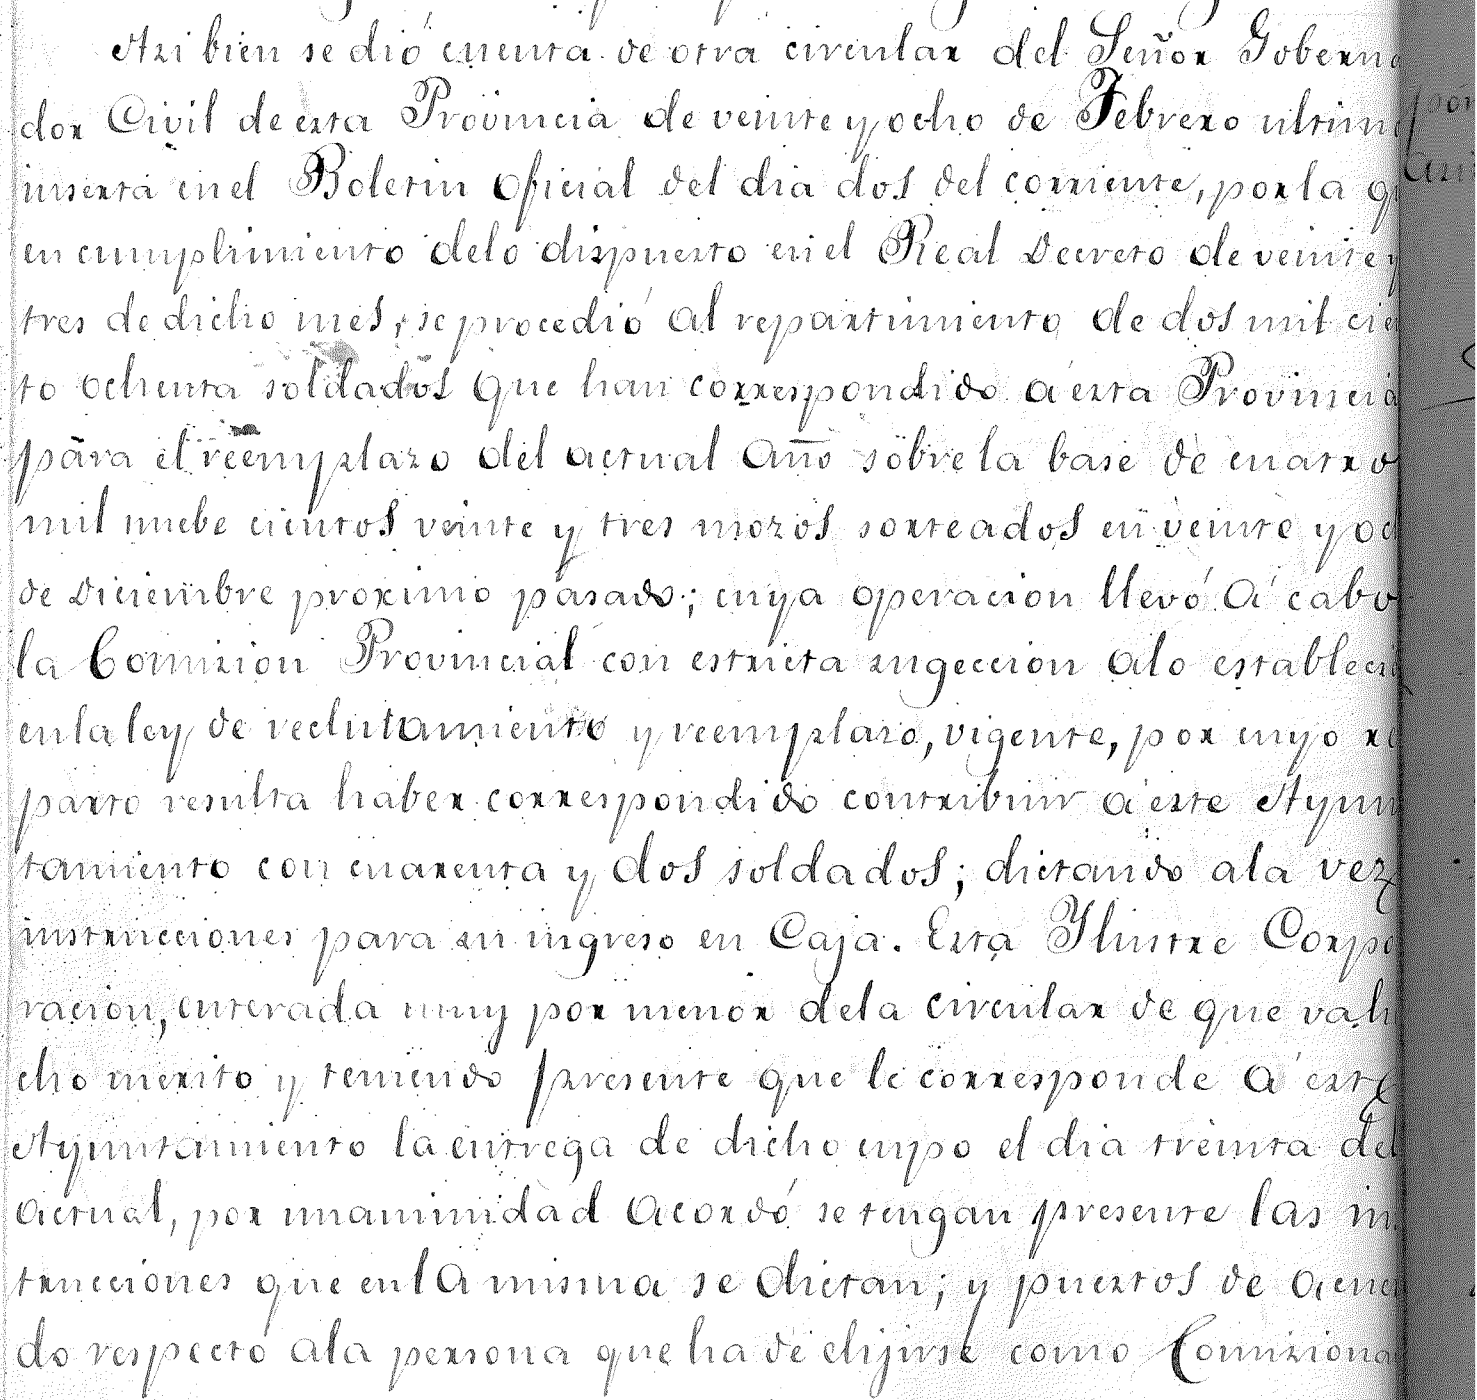 Asi bien se dió cuenta de otra circular del Señor Goberna
dor Civil de esta Provincia de veinte y ocho de Febrero ultimo
inserta en el Boletin Oficial del dia dos del corriente, por la q
en cumplimiento de lo dispuesto en el Real Decreto de veinte y
tres de dicho mes, se procedió al repartimiento de dos mil cie
to ochenta soldados que han correspondido á esta Provincia
para el reemplazo del actual año sobre la base de cuatro
mil nuebe cientos veinte y tres mozos sorteados en veinte y oc
de Diciembre proximo pasado; cuya operacion llevó á cabo
la Comision Provincial con estricta sugeccion a lo estableci
en la ley de reclutamiento y reemplazo, vigente, por cuyo re
parto resulta haber correspondido contribuir á este Ayun
tamiento con cuarenta y dos soldados; dictando a la vez
instrucciones para su ingreso en Caja. Esta Ilustre Corpo
racion, enterada muy por menor de la circular de que vah
cho merito y teniendo presente que le corresponde á este
Ayuntamiento la entrega de dicho cupo el dia treinta del
actual, por unaminidad acordó se tengan presente las ins
trucciones que en la misma se dictan; y puestos de acuer
do respecto a la persona que ha de elijirse como Comisiona